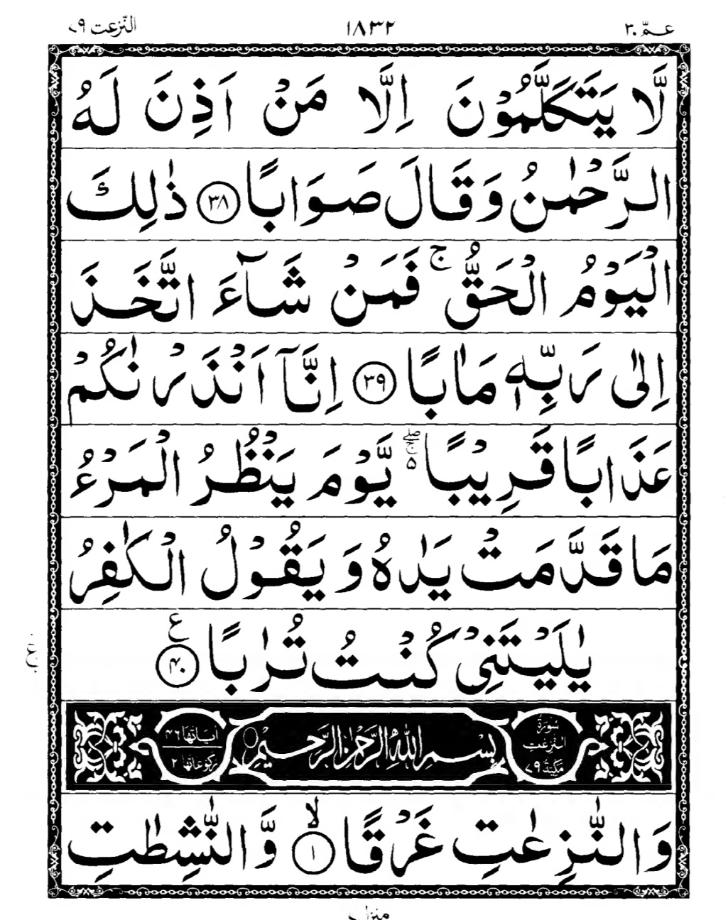 عمّ ۳۰
۱۸۳۲
النّزعت ۷۹
لَّا يَتَكَلَّمُوْنَ اِلَّا مَنْ اَذِنَ لَهُ
الرَّحْمٰنُ وَقَالَ صَوَابًا ﴿۳۸﴾ ذٰلِكَ
الْيَوْمُ الْحَقُّ ۚ فَمَنْ شَآءَ اتَّخَذَ
اِلٰى رَبِّهٖ مَاٰبًا ﴿۳۹﴾ اِنَّاۤ اَنْذَرْنٰكُمْ
عَذَابًا قَرِيْبًا ۬ۥۖ يَّوْمَ يَنْظُرُ الْمَرْءُ
مَا قَدَّمَتْ يَدٰهُ وَ يَقُوْلُ الْكٰفِرُ
يٰلَيْتَنِيْ كُنْتُ تُرٰبًا ﴿۴۰﴾ ع
سُوْرَةُ النّٰزِعٰتِ مَكِّيَّةٌ ۷۹
بِسْمِ اللّٰهِ الرَّحْمٰنِ الرَّحِيْمِ
اٰيَاتُهَا ۴۶ رُكُوْعَاتُهَا ۲
وَالنّٰزِعٰتِ غَرْقًا ﴿۱﴾ ۙ وَّالنّٰشِطٰتِ
منزل ۷